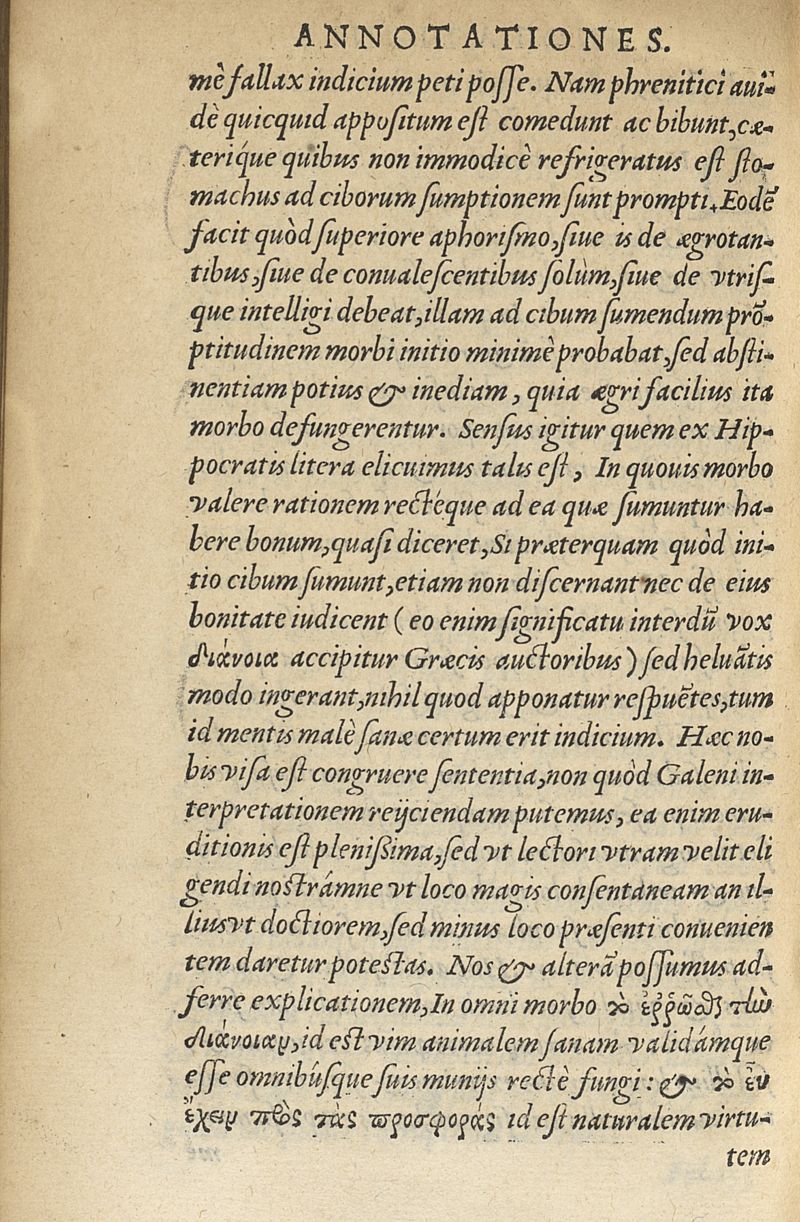 ANNOTATIONES.
mè fallax indicium peti posse. Nam phrenitici aui-
dè quicquid appositum est comedunt ac bibunt, cæ-
terique quibus non immodicè refrigeratus est sto-
machus ad ciborum sumptionem sunt prompti. Eodē
facit quòd superiore aphorismo, siue is de ægrotan-
tibus, siue de conualescentibus solùm, siue de vtris-
que intelligi debeat, illam ad cibum sumendum prō-
ptitudinem morbi initio minimè probabat, sed absti-
nentiam potius & inediam, quia ægri facilius ita
morbo defungerentur. Sensus igitur quem ex Hip-
pocratis litera elicuimus talis est, In quouis morbo
valere rationem rectéque ad ea quæ sumuntur ha-
bere bonum, quasi diceret, Si præterquam quòd ini-
tio cibum sumunt, etiam non discernant nec de eius
bonitate iudicent (eo enim significatu interdū vox
διάνοια accipitur Græcis auctoribus) sed heluātis
modo ingerant, nihil quod apponatur respuētes, tum
id mentis malè sanæ certum erit indicium. Hæc no-
bis visa est congruere sententia, non quòd Galeni in-
terpretationem reijciendam putemus, ea enim eru-
ditionis est plenissima, sed vt lectori vtram velit eli
gendi nostrámne vt loco magis consentaneam an il-
lius vt doctiorem, sed minus loco præsenti conuenien
tem daretur potestas. Nos & alterā possumus ad-
ferre explicationem, In omni morbo τὸ ἐῤῥῶσθαι τὴν
διάνοιαν, id est vim animalem sanam validámque
esse omnibúsque suis munijs rectè fungi: & τὸ εὖ
ἔχειν πρὸς τὰς προσφοράς id est naturalem virtu-
tem